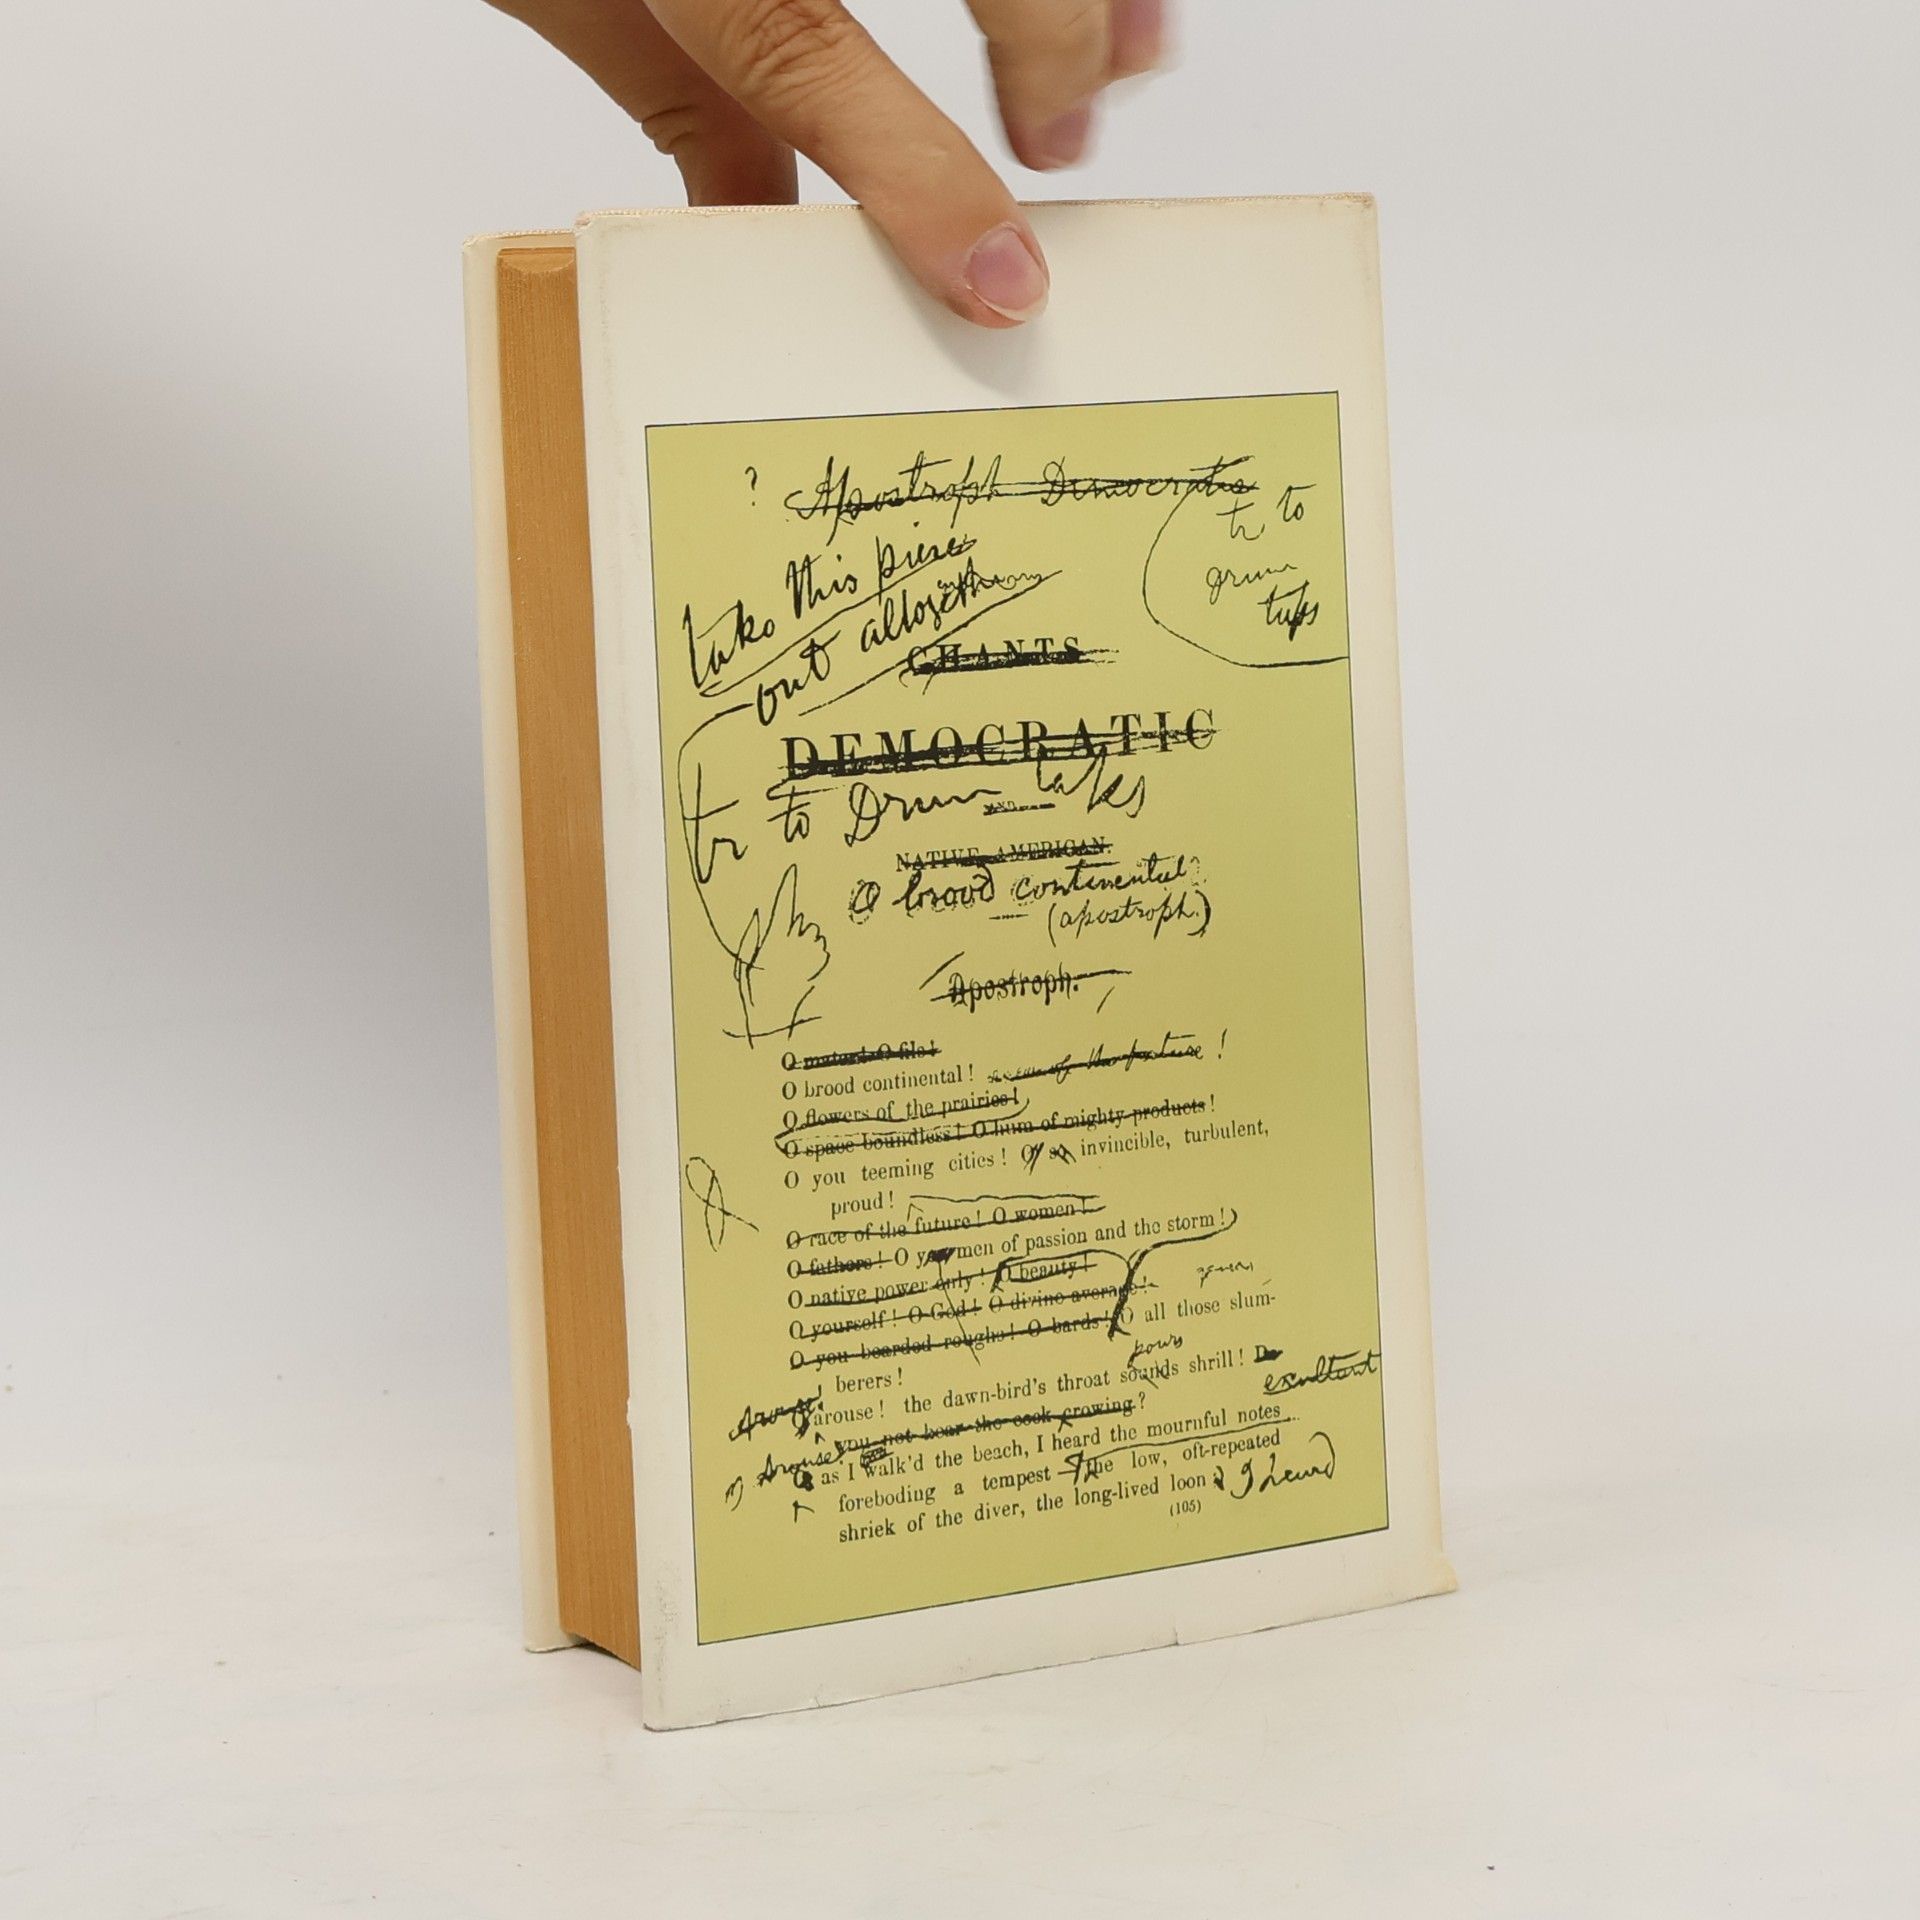 ? Apostroph Democratic
tr to
drum
taps
take this piece
out altogether
CHANTS
DEMOCRATIC
tr to Drum taps
AND
NATIVE AMERICAN.
O brood continental
(apostroph.)
Apostroph.
O mater! O fils!
O brood continental! of the future!
O flowers of the prairies!
O space boundless! O hum of mighty products!
O you teeming cities! O so invincible, turbulent,
proud!
O race of the future! O women!
O fathers! O you men of passion and the storm!
O native power only! O beauty!
O yourself! O God! O divine average!
O you bearded roughs! O bards! O all those slum-
berers!
pours
O arouse! the dawn-bird's throat sounds shrill! Do
exultant
you not hear the cock crowing?
Arouse!
O as I walk'd the beach, I heard the mournful notes
foreboding a tempest — the low, oft-repeated
shriek of the diver, the long-lived loon I heard
(105)